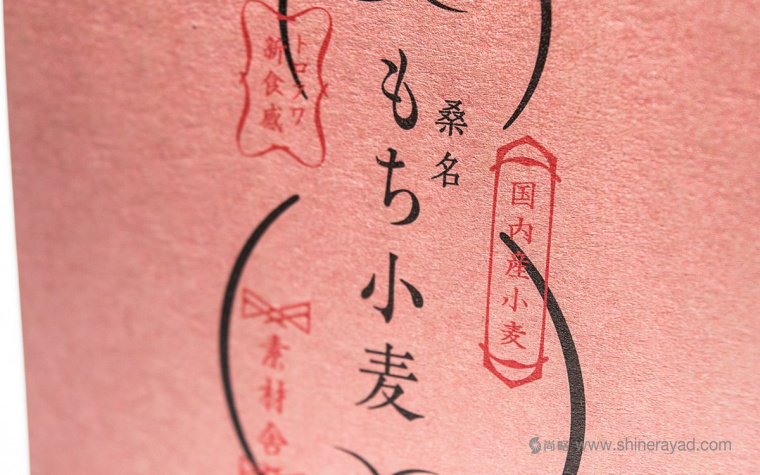 国内産小麦
桑名
もち小麦
トロフワ
新食感
素材舎
尚略 www.shinerayad.com